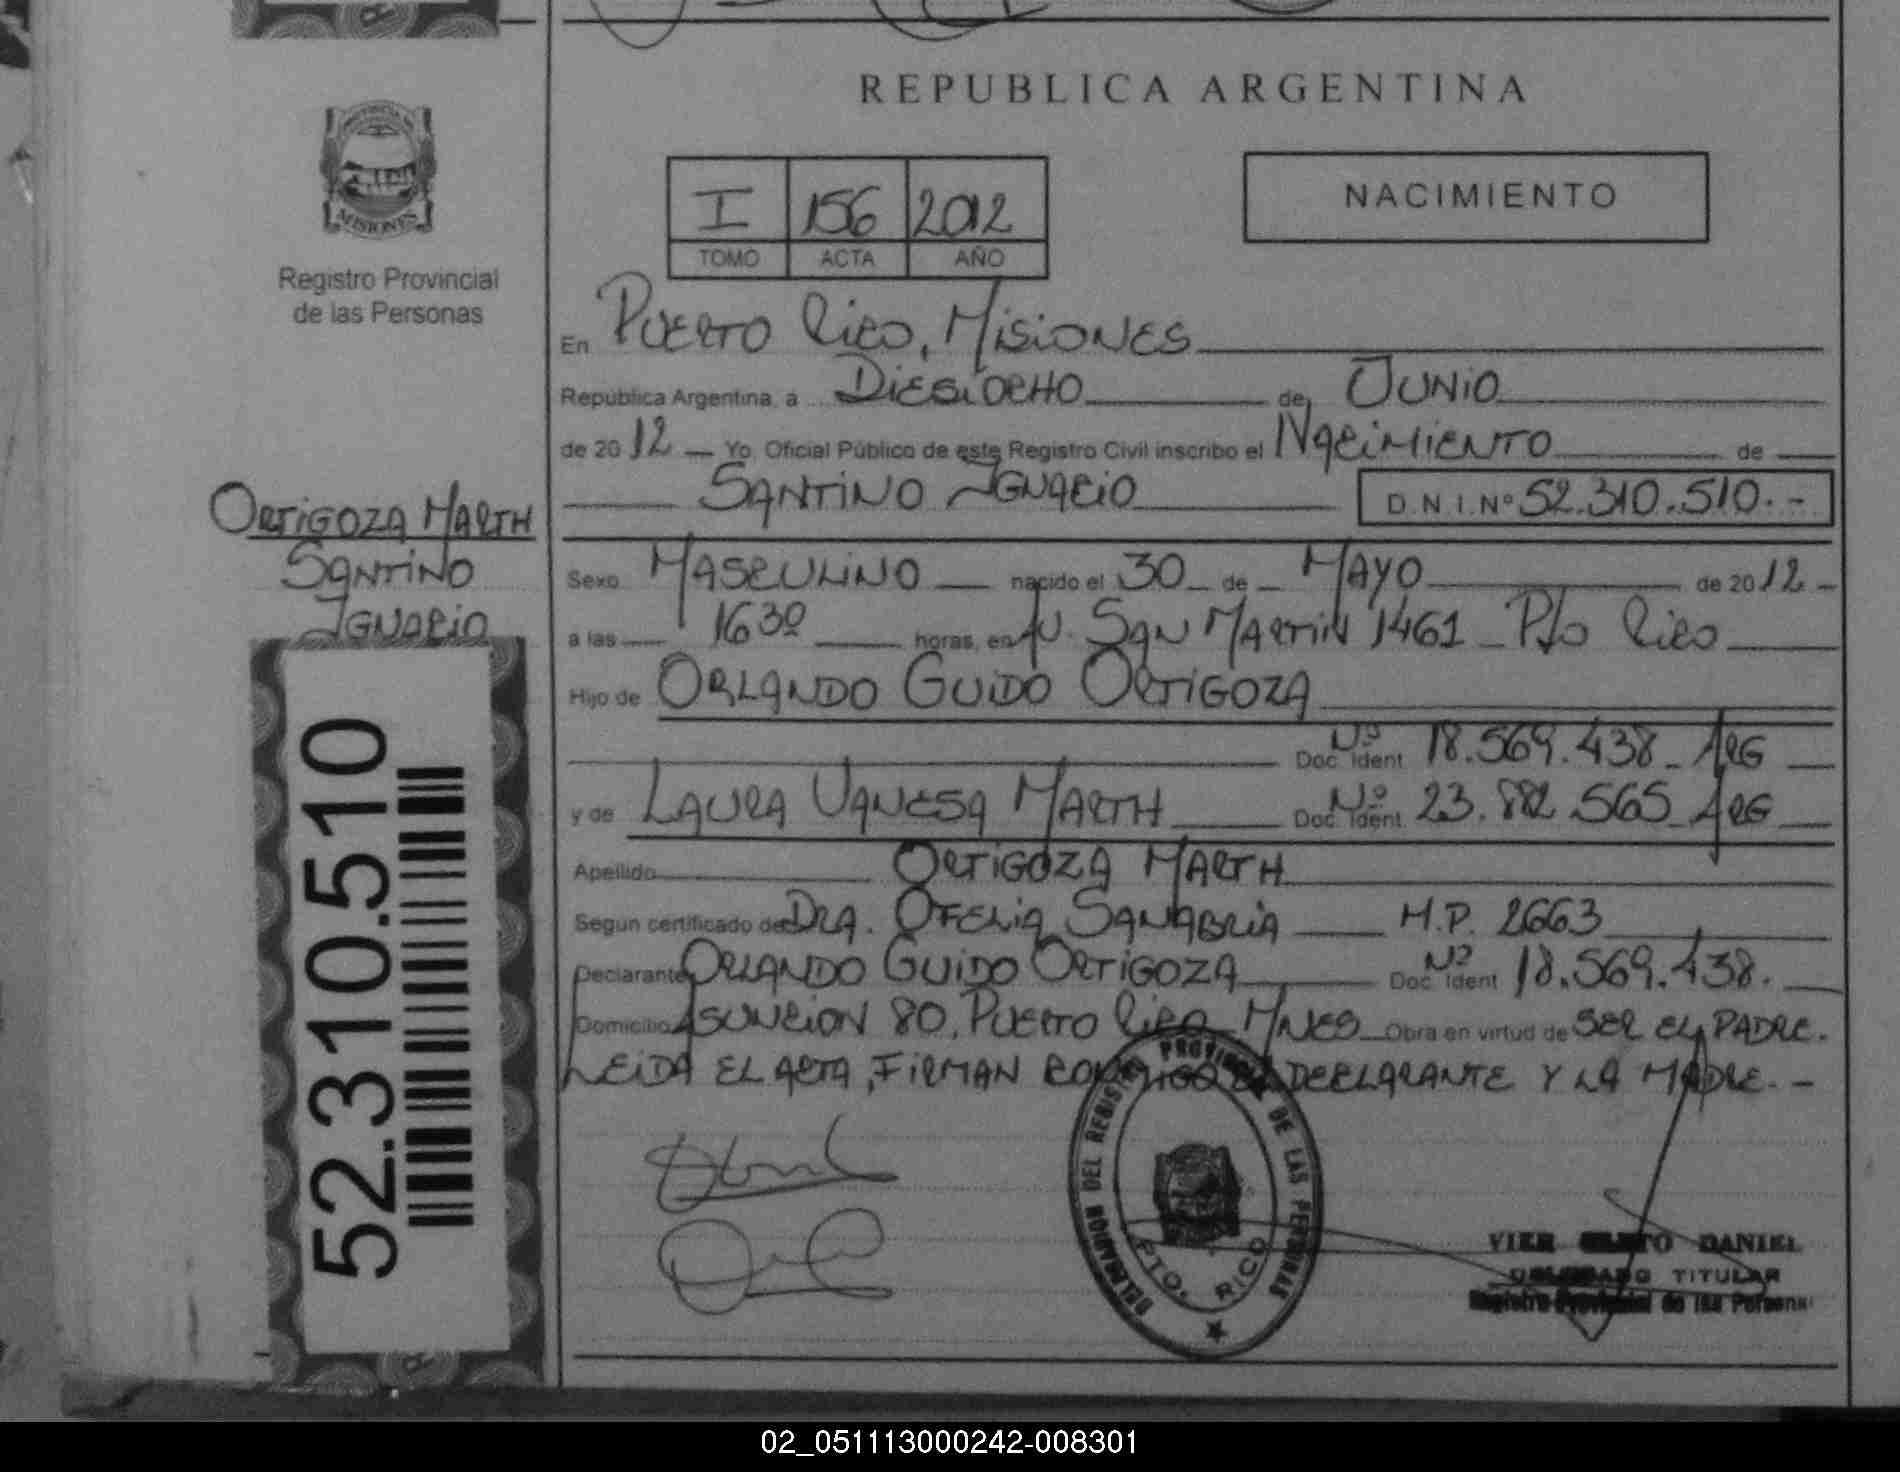 REPUBLICA ARGENTINA
PROVINCIA DE
MISIONES
Registro Provincial
de las Personas
I 156 2012
TOMO ACTA AÑO
NACIMIENTO
En PUERTO RICO, MISIONES
República Argentina, a DIESIOCHO de JUNIO
de 2012 Yo, Oficial Público de este Registro Civil inscribo el NACIMIENTO de
SANTINO IGNACIO D.N.I.Nº 52.310.510.-
ORTIGOZA MARTH
SANTINO
IGNACIO
Sexo MASCULINO nacido el 30 de MAYO de 2012
a las 1630 horas, en AV. SAN MARTIN 1461 - Pto RICO
Hijo de ORLANDO GUIDO ORTIGOZA
Doc. Ident. Nº 18.569.438 - ARG
y de LAURA VANESA MARTH Doc. Ident. Nº 23.882.565 - ARG
Apellido ORTIGOZA MARTH
Según certificado de DRA. OFELIA SANABRIA M.P. 2663
Declarante ORLANDO GUIDO ORTIGOZA Doc. Ident. Nº 18.569.438.
Domicilio ASUNCION 80, PUERTO RICO - MNES Obra en virtud de SER EL PADRE.
LEIDA EL ACTA, FIRMAN CONMIGO EL DECLARANTE Y LA MADRE. -
52.310.510
DELEGACION DEL REGISTRO PROVINCIAL DE LAS PERSONAS
PTO. RICO
VIER DANIEL
DELEGADO TITULAR
Registro Provincial de las Personas
02_051113000242-008301